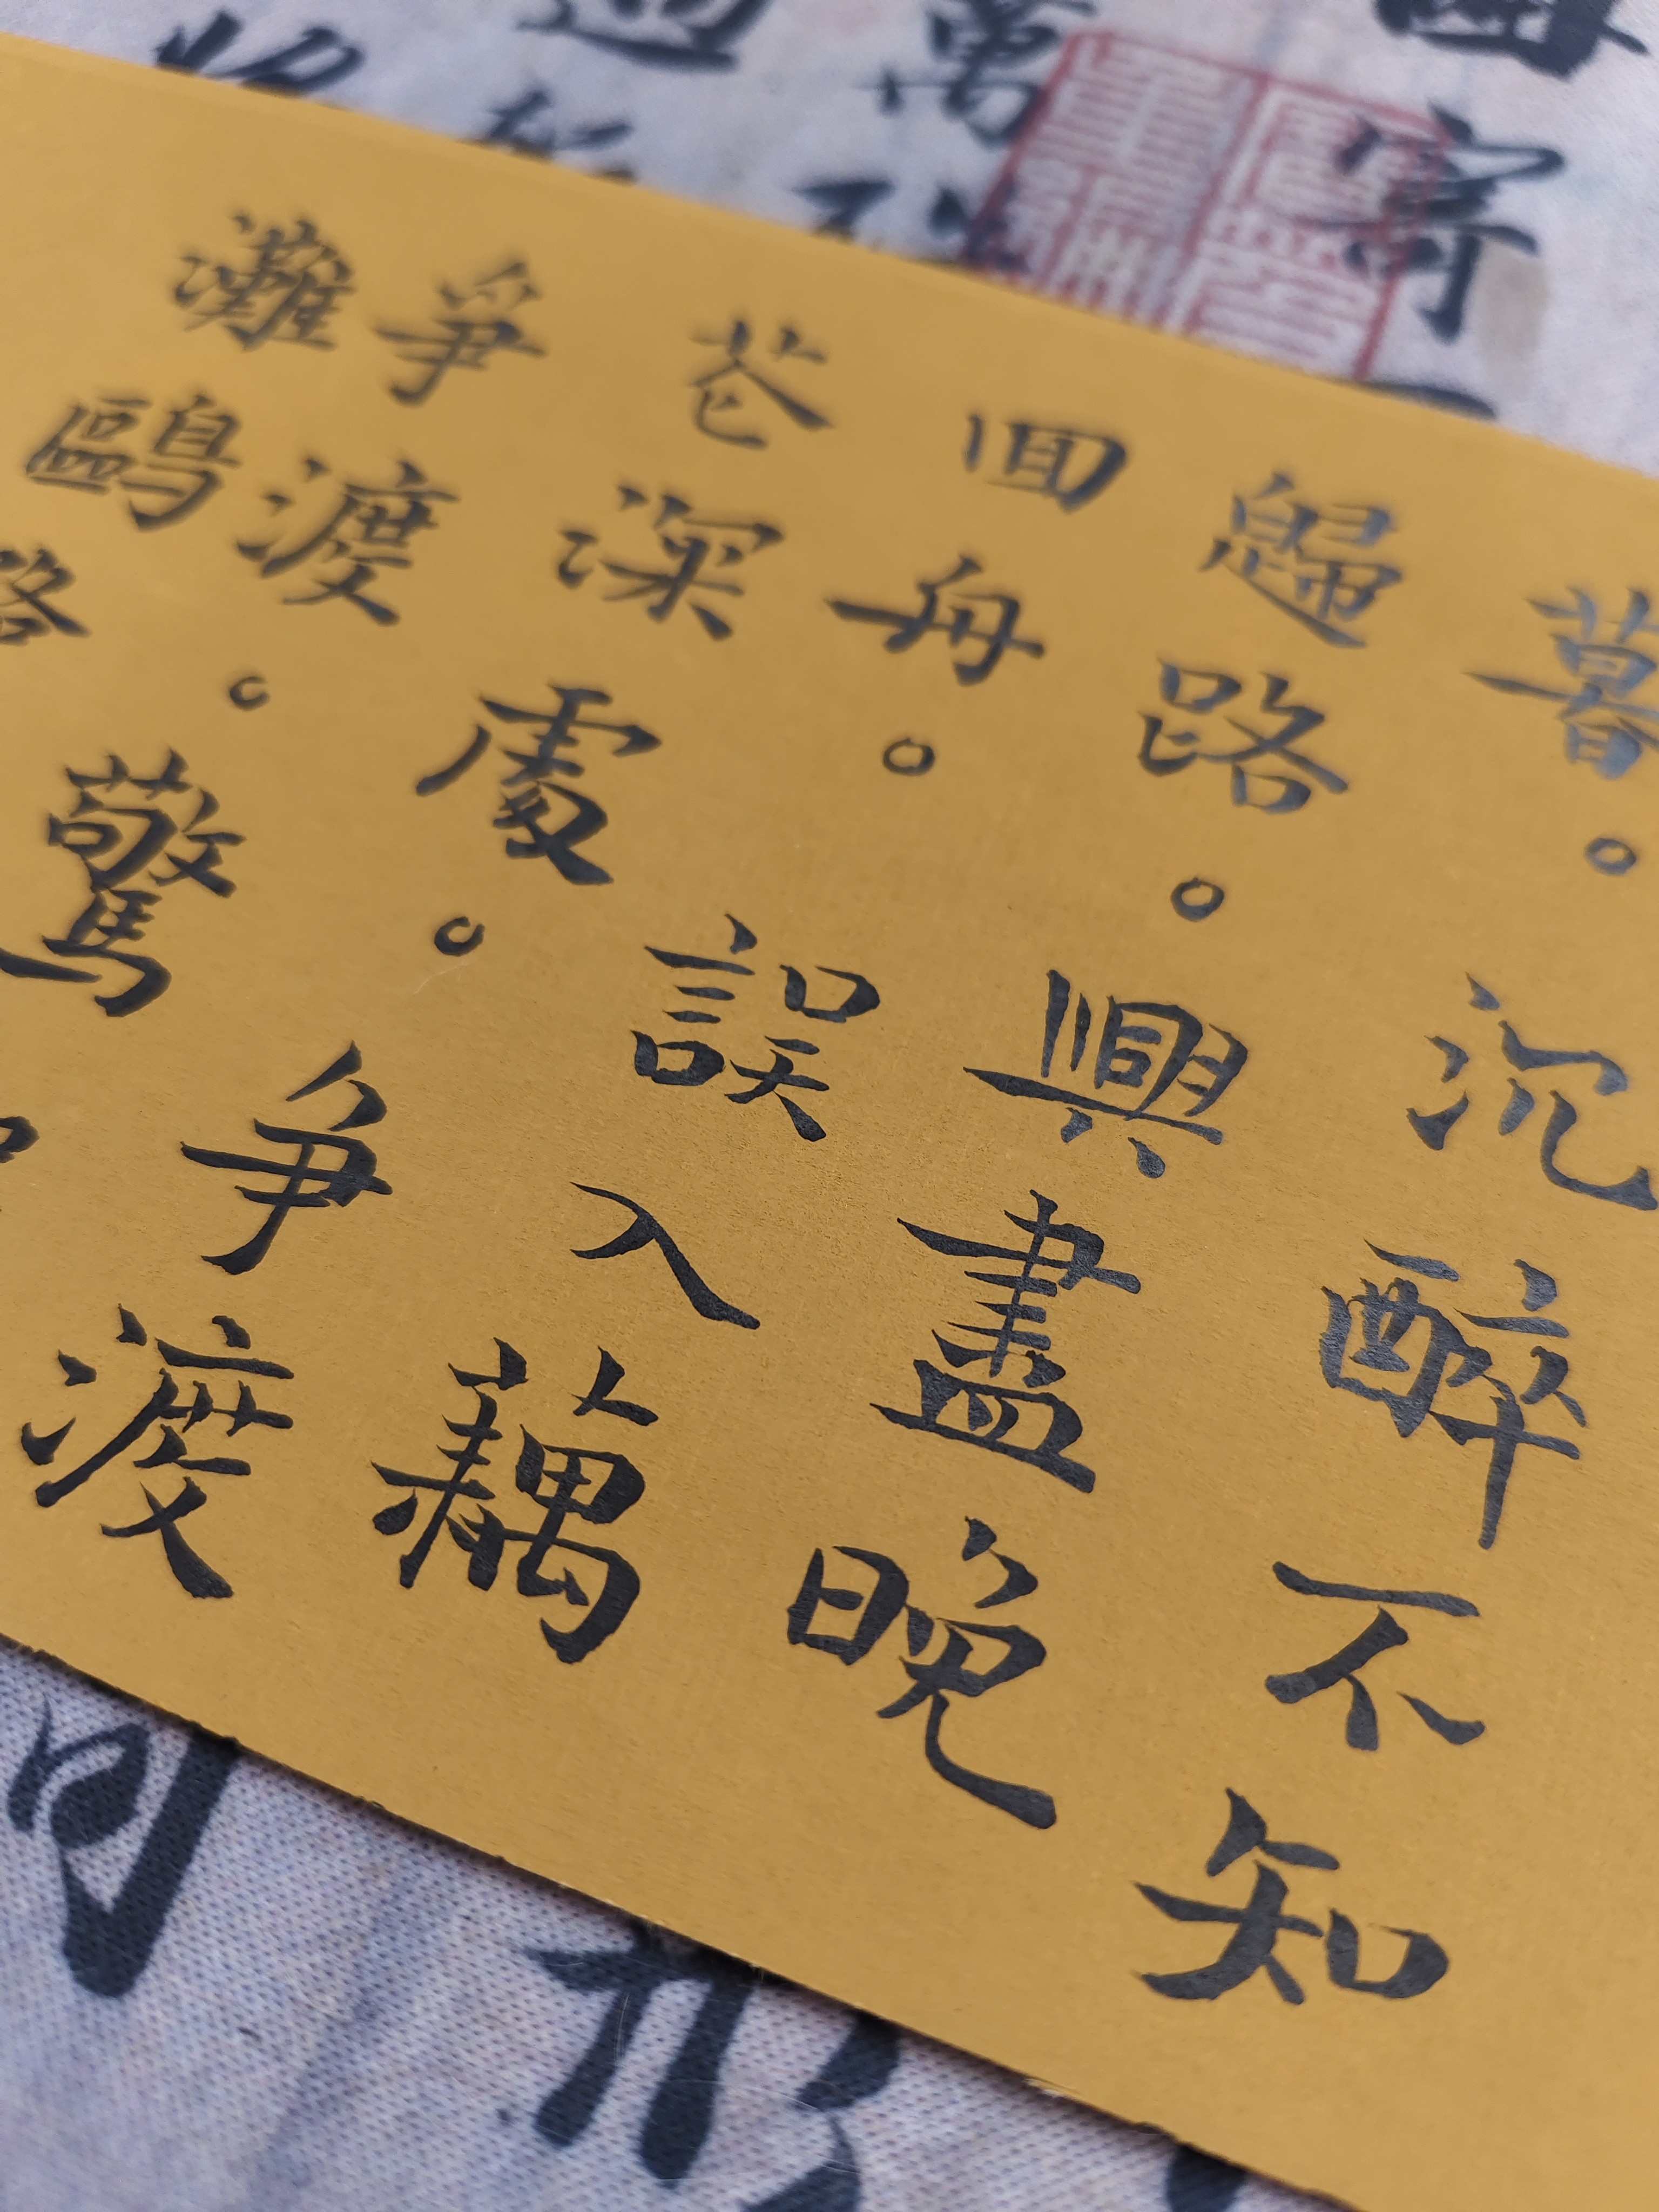 暮。沉醉不知
歸路。興盡晚
回舟。誤入藕
花深處。爭渡
爭渡。驚
灘鷗
寄
萬